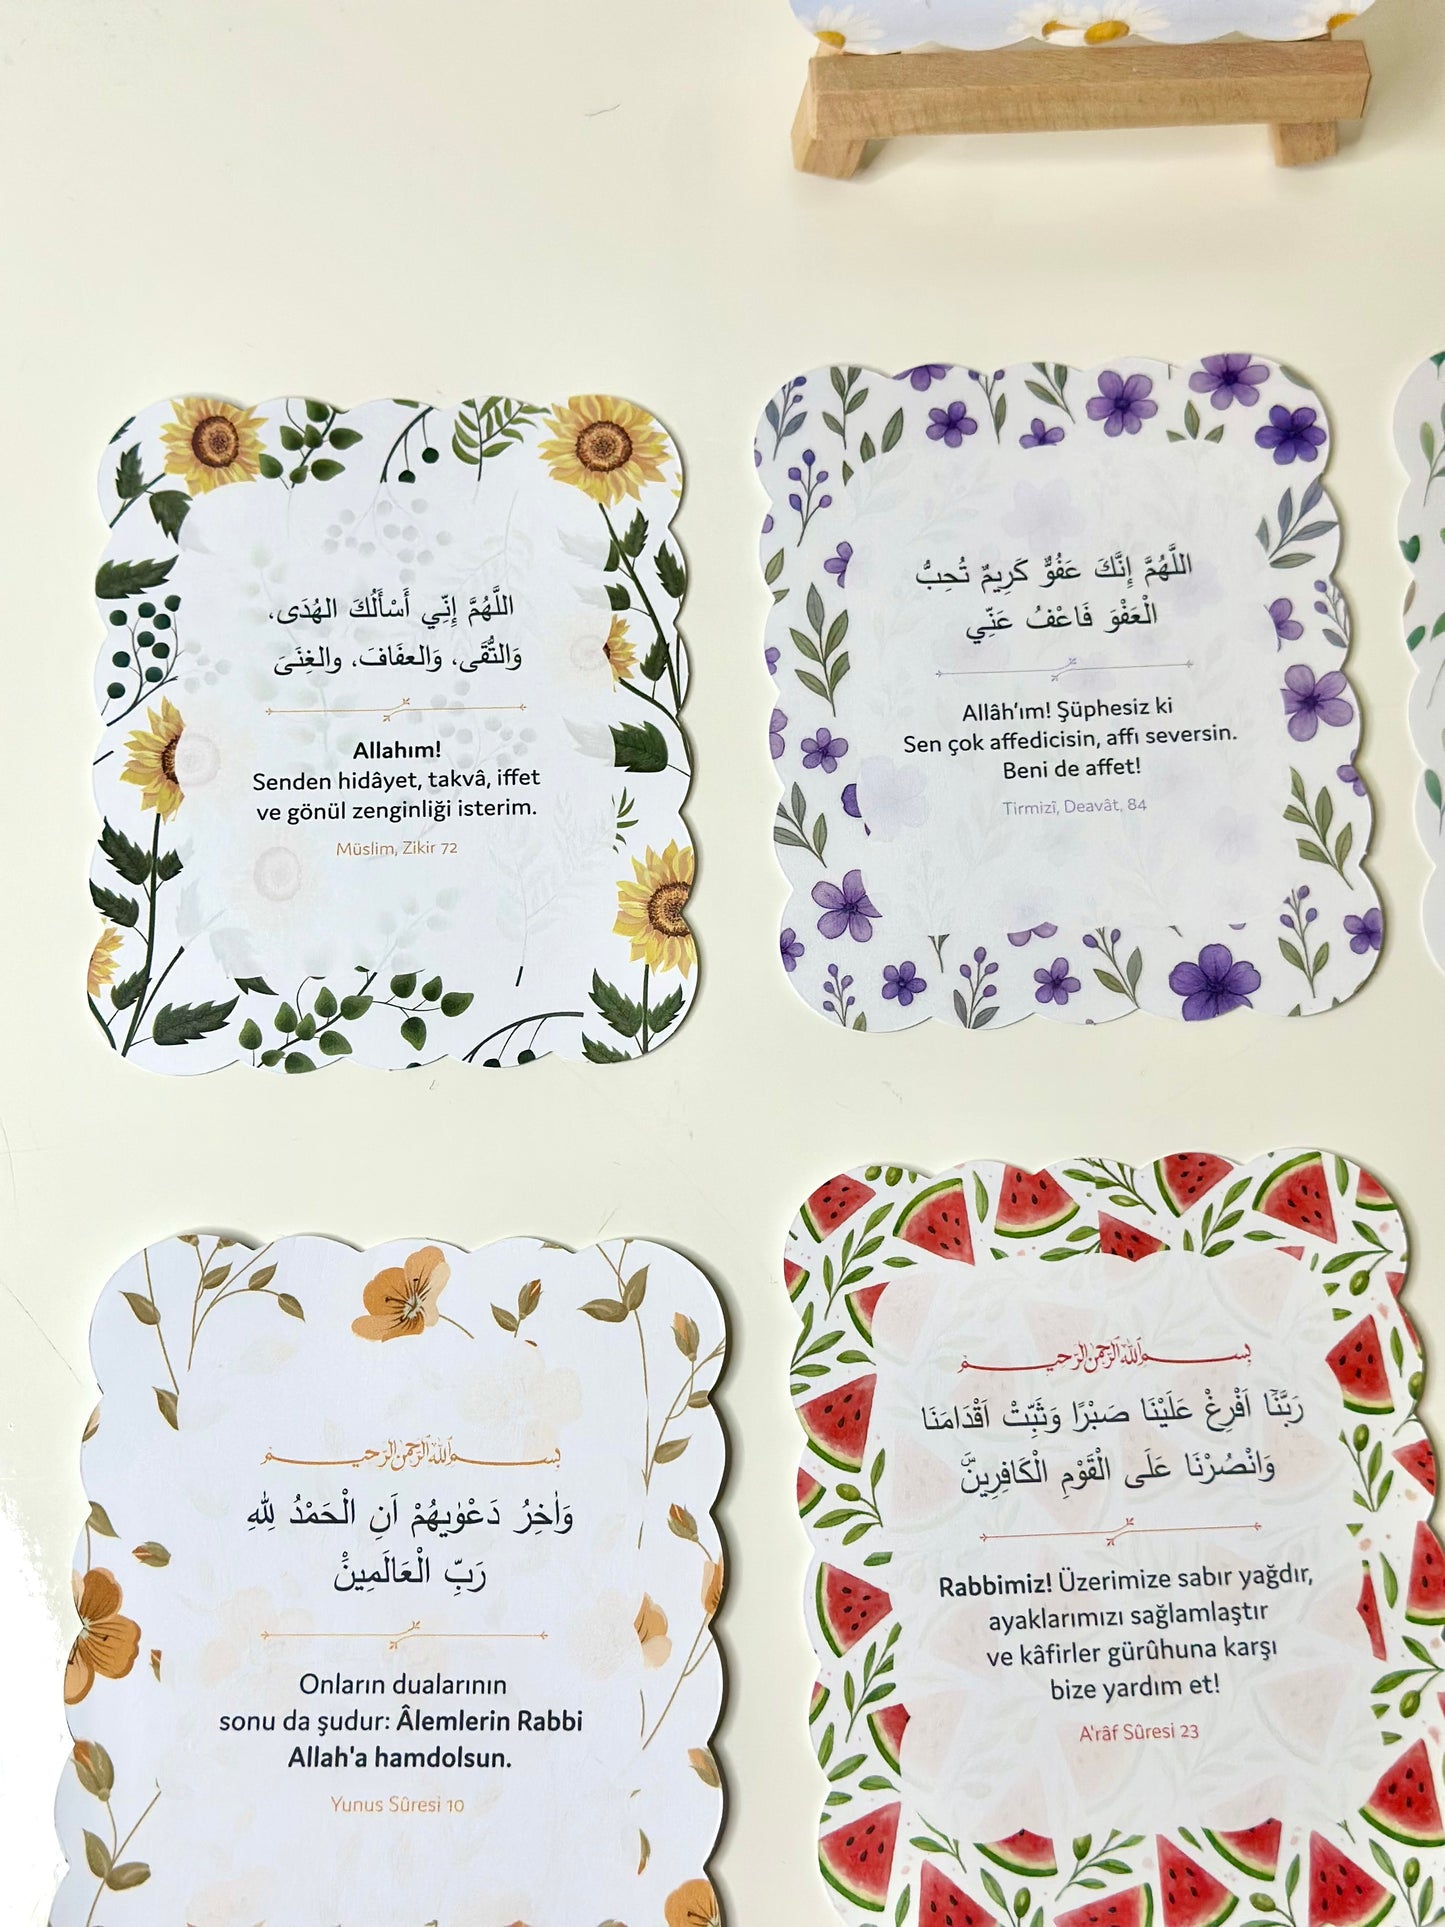 اللَّهُمَّ إِنِّي أَسْأَلُكَ الهُدَى،
وَالتُّقَى، وَالعفَافَ، والغِنَىَ
Allahım!
Senden hidâyet, takvâ, iffet
ve gönül zenginliği isterim.
Müslim, Zikir 72
اللَّهُمَّ إِنَّكَ عَفُوٌّ كَرِيمٌ تُحِبُّ
الْعَفْوَ فَاعْفُ عَنِّي
Allâh’ım! Şüphesiz ki
Sen çok affedicisin, affı seversin.
Beni de affet!
Tirmizî, Deavât, 84
بسم الله الرحمن الرحيم
وَاٰخِرُ دَعْوٰيهُمْ اَنِ الْحَمْدُ لِلّٰهِ
رَبِّ الْعَالَمِينَۚ
Onların dualarının
sonu da şudur: Âlemlerin Rabbi
Allah'a hamdolsun.
Yunus Sûresi 10
بسم الله الرحمن الرحيم
رَبَّنَٓا اَفْرِغْ عَلَيْنَا صَبْرًا وَثَبِّتْ اَقْدَامَنَا
وَانْصُرْنَا عَلَى الْقَوْمِ الْكَافِرِينَۜ
Rabbimiz! Üzerimize sabır yağdır,
ayaklarımızı sağlamlaştır
ve kâfirler gürûhuna karşı
bize yardım et!
A'râf Sûresi 23